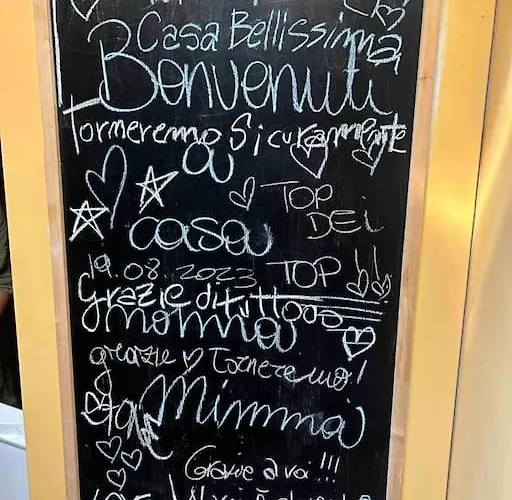 Casa Bellissima
Benvenuti
Torneremo Sicuramente
a
TOP
DEi
casa
19.08.2023 TOP
Grazie di tutto
nonna
grazie Torneremo!
Mimma
Grazie a voi!!!